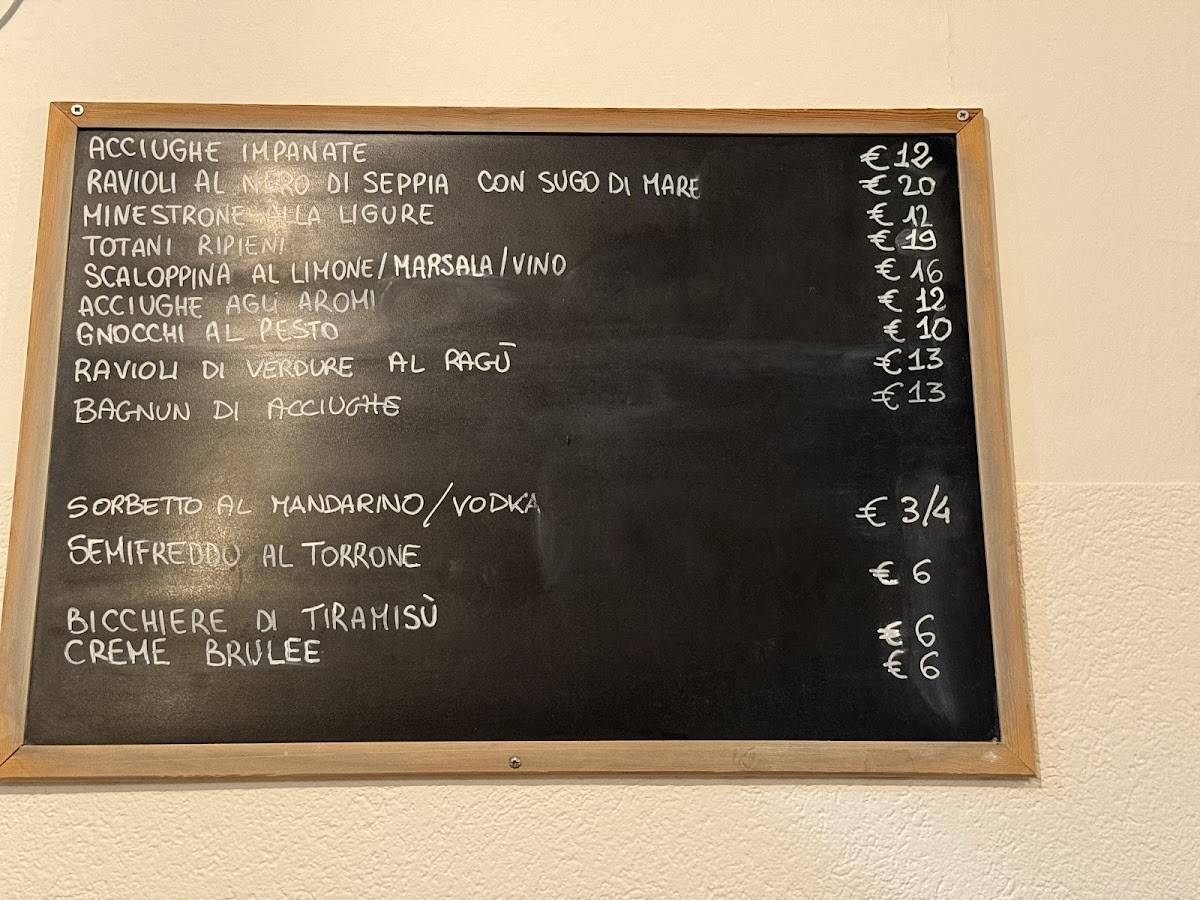 ACCIUGHE IMPANATE € 12
RAVIOLI AL NERO DI SEPPIA CON SUGO DI MARE € 20
MINESTRONE ALLA LIGURE € 12
TOTANI RIPIENI € 19
SCALOPPINA AL LIMONE/MARSALA/VINO € 16
ACCIUGHE AGLI AROMI € 12
GNOCCHI AL PESTO € 10
RAVIOLI DI VERDURE AL RAGÙ € 13
BAGNUN DI ACCIUGHE € 13
SORBETTO AL MANDARINO/VODKA € 3/4
SEMIFREDDO AL TORRONE € 6
BICCHIERE DI TIRAMISÙ € 6
CREME BRULEE € 6